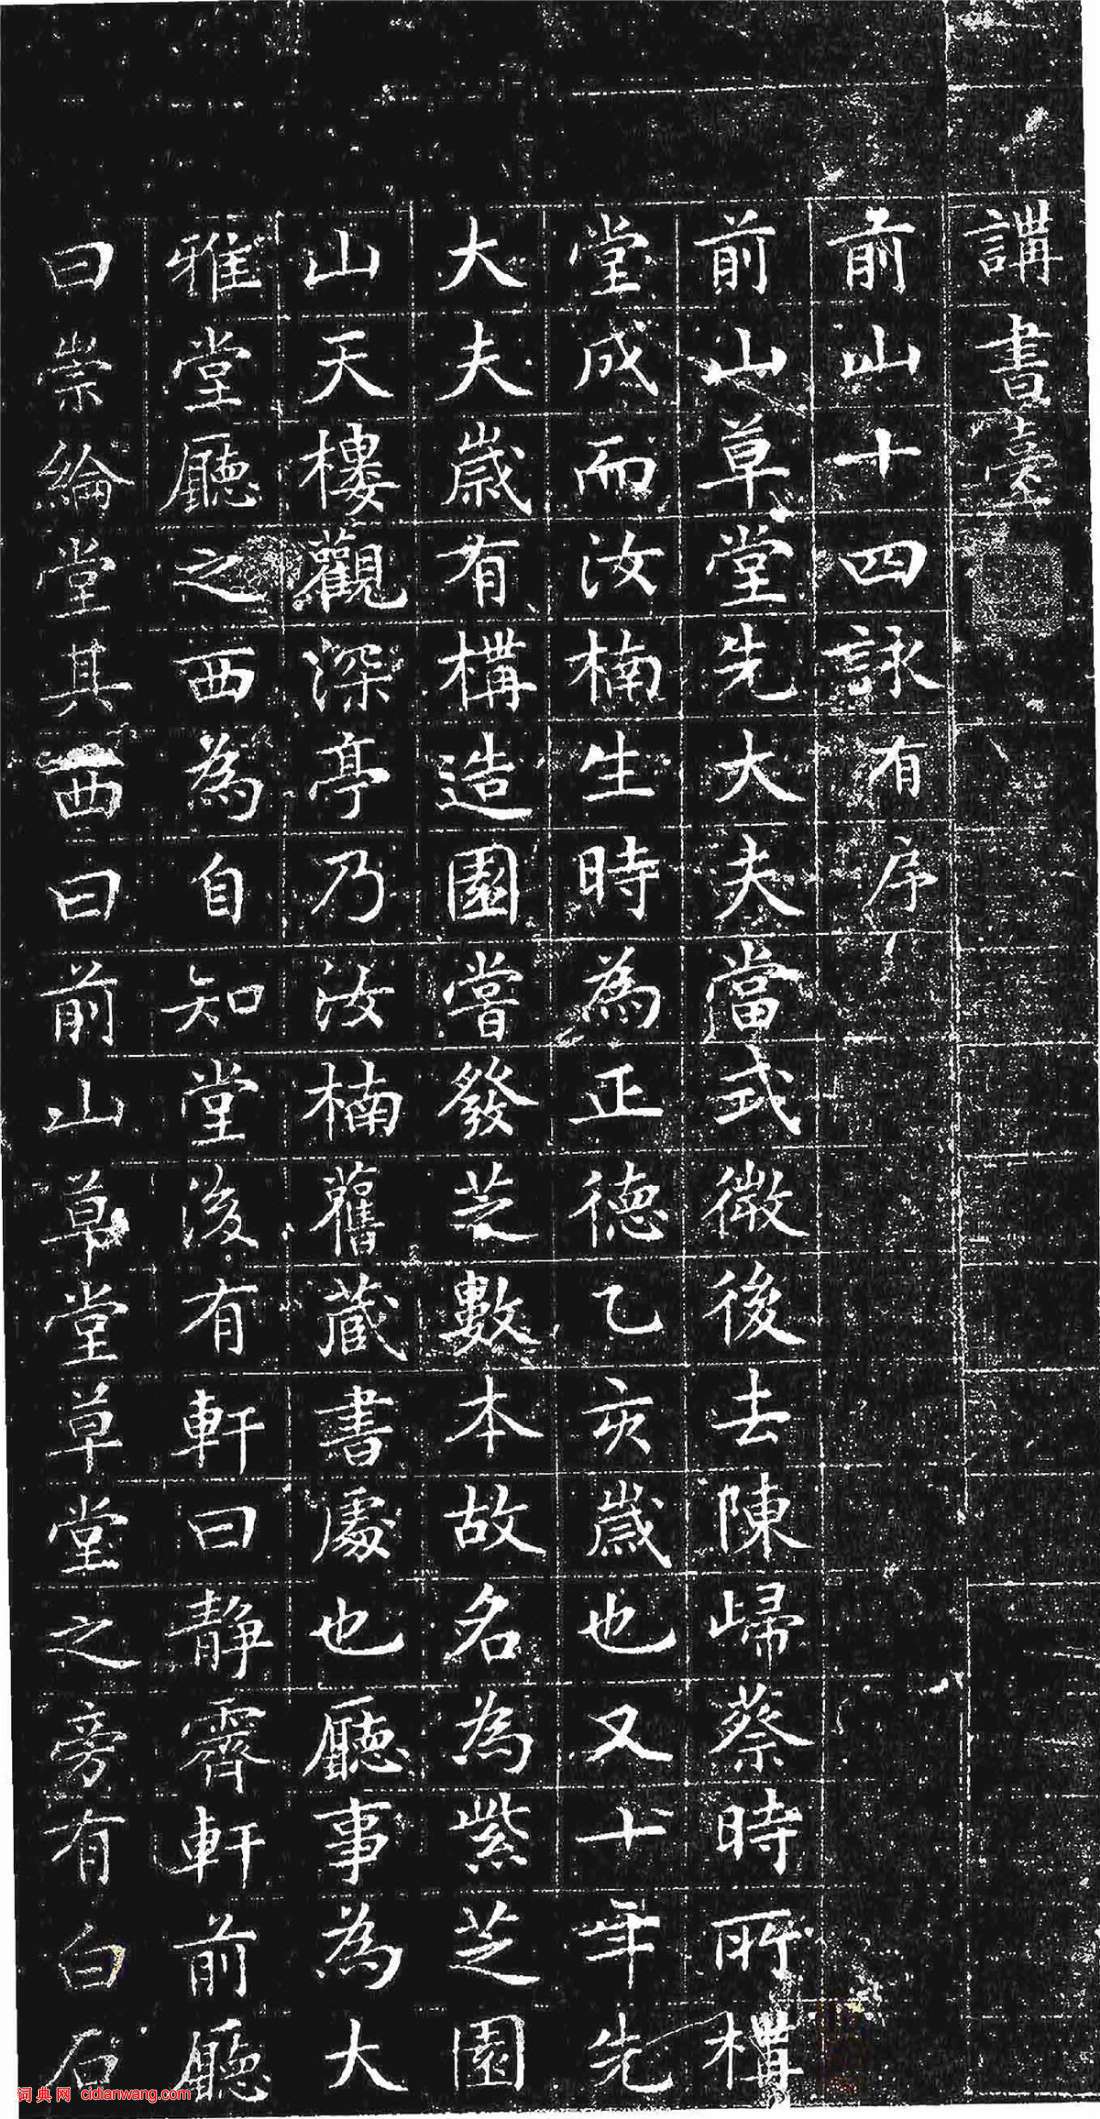 講書臺
前山十四詠有序
前山草堂先大夫當弍徵後去陳歸蔡時所構
堂成而汝楠生時為正德乙亥歲也又十年先
大夫歲有構造園嘗發芝數本故名為紫芝園
山天樓觀深亭乃汝楠舊藏書處也廳事為大
雅堂廳之西為自知堂後有軒曰靜齋軒前廳
曰崇綸堂其西曰前山草堂草堂之旁有白石
词典网 cidianwang.com